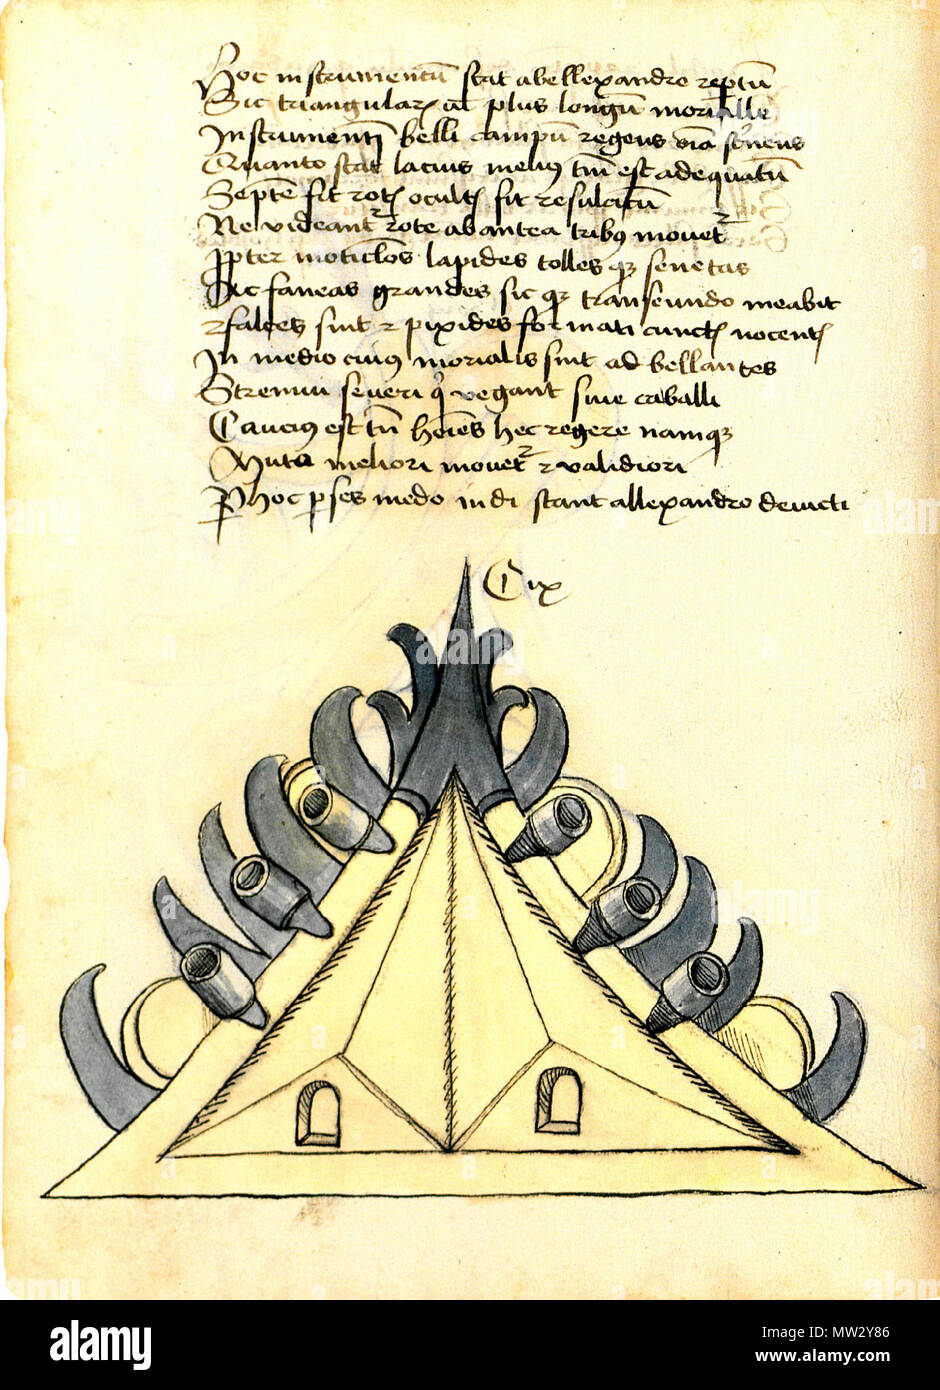 Hoc instrumentū stat abellexandro reptū
Sic triangulare ac plus longū
Instrumentū belli campū regens viā
Quanto stat lacius melius tm̄ est adequatū
Septē fit rotis ocultis fit resulcitū
Ne videantʳ rote ab antea tribus mouetʳ
Ppter moticulos lapides tolles qꝫ senetas
Sic faneas grandes sic qꝫ transeundo meabit
falces sint ⁊ pixides formati cunctis nocentis
In medio cuius morialis sint ad bellantes
Strenui seueri qͥ vegant siue caballi
Caucius est tm̄ hoīes hec regere namqꝫ
Muta meliori mouetʳ ⁊ validiori
P hoc pses medo indi stant allexandro deuicti
alamy
a
alamy
Image ID: MW2Y86
www.alamy.com